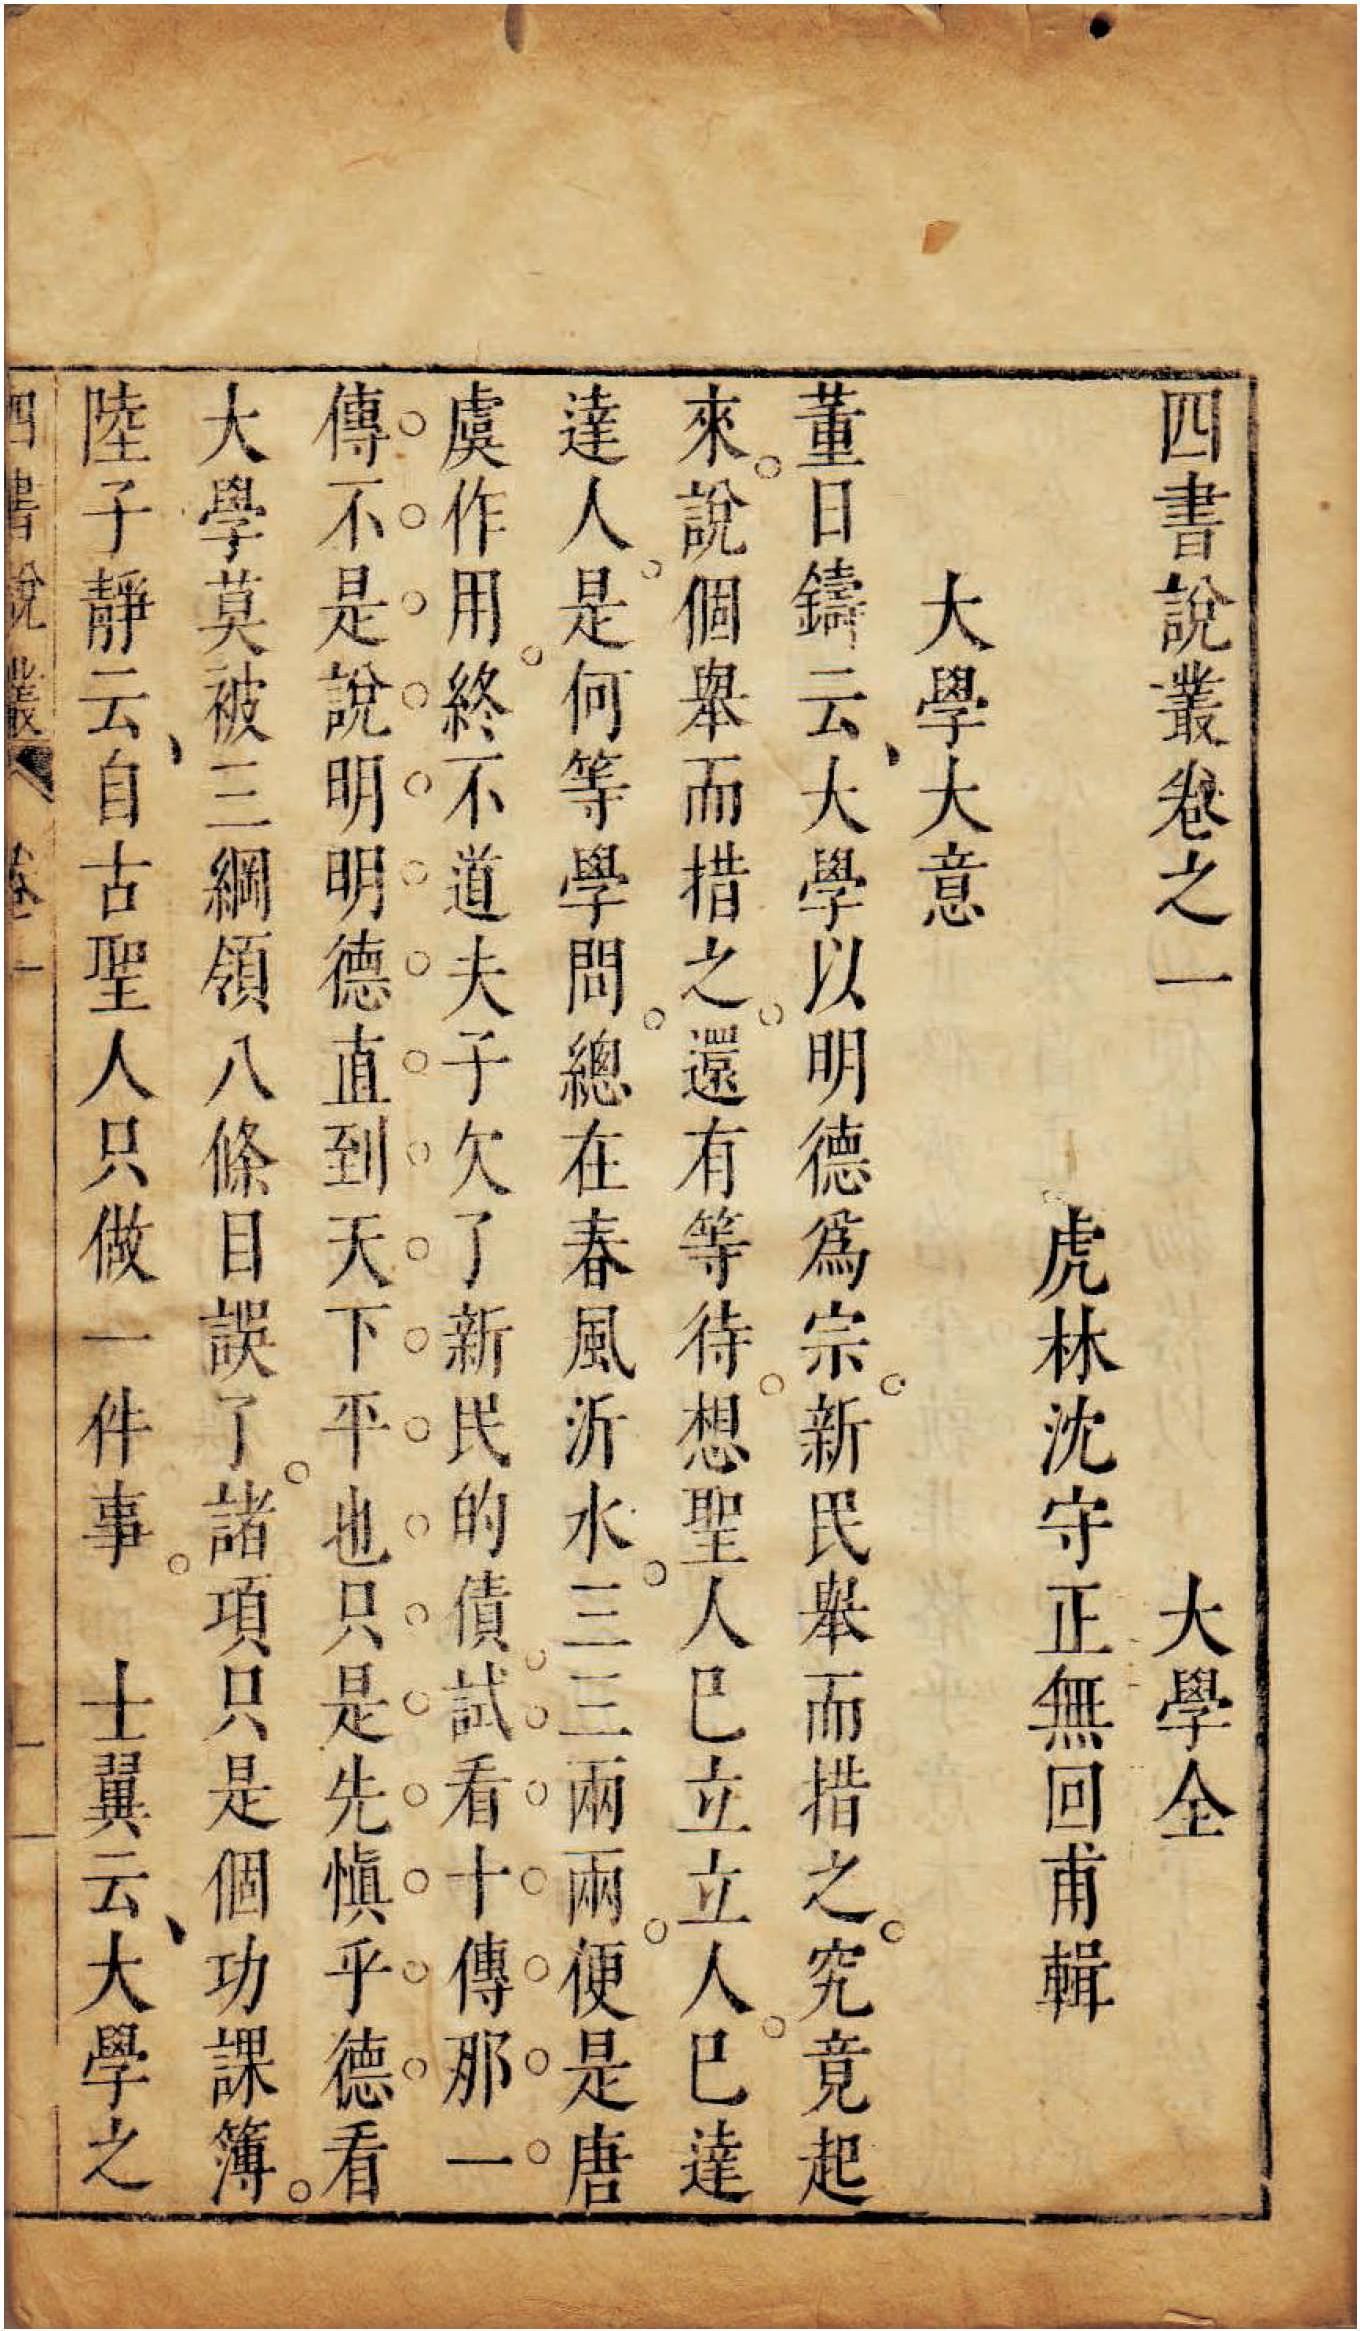 四書說叢卷之一　大學全
虎林沈守正無回甫輯
大學大意
董日鑄云、大學以明德爲宗。新民舉而措之。究竟起
來。說個舉而措之。還有等待。想聖人巳立立人。巳達
達人。是何等學問。總在春風沂水。三三兩兩。便是唐
虞作用。終不道夫子欠了新民的債。試看十傳那一
傳不是說明明德直到天下平也只是先愼乎德看
大學莫被三綱領八條目誤了。諸項只是個功課簿。
陸子靜云、自古聖人只做一件事。　士翼云、大學之
四書說叢　卷一　一